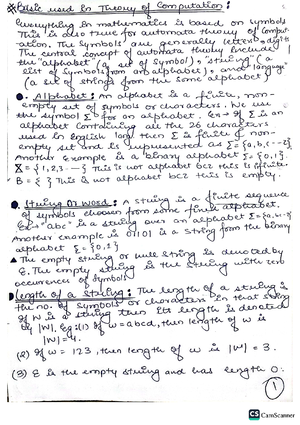 Basic used in Theory of Computation:
Everything in mathematics is based on symbols
This is also true for automata theory of comput-
ation. The symbols are generally letters & digits
The central concept of automata theory include
the "alphabet" (a set of symbol), "string" (a
list of symbols from an alphabet) and "language"
(a set of strings from the same alphabet)
Alphabet: An alphabet is a finite, non-
empty set of symbols or characters. We use
the symbol Σ for an alphabet. Ex → If Σ is an
alphabet containing all the 26 characters
used in English lang then Σ is finite & non-
empty set and is represented as Σ = {a, b, c --- z}
Another example is a binary alphabet Σ = {0, 1}.
X = {1, 2, 3 --- } This is not alphabet bcz this is finite.
B = { } This is not alphabet bcz this is empty.
String or word: A string is a finite sequence
of symbols choosen from some finite alphabet.
Ex → "abc" is a string over an alphabet Σ = {a, b --- z}
Another example is 01101 is a string form the binary
alphabet Σ = {0, 1}
The empty string or null string is denoted by
ε. The empty string is the string with zero
occurences of symbols
Length of a string: The length of a string is
the no. of symbols or characters in that string
If W is a string then its length is denoted
by |W|. Eg: (1) If w = abcd, then length of w is
|W| = 4.
(2) If w = 123, then length of w is |W| = 3.
(3) ε is the empty string and has length 0.
1
CS CamScanner